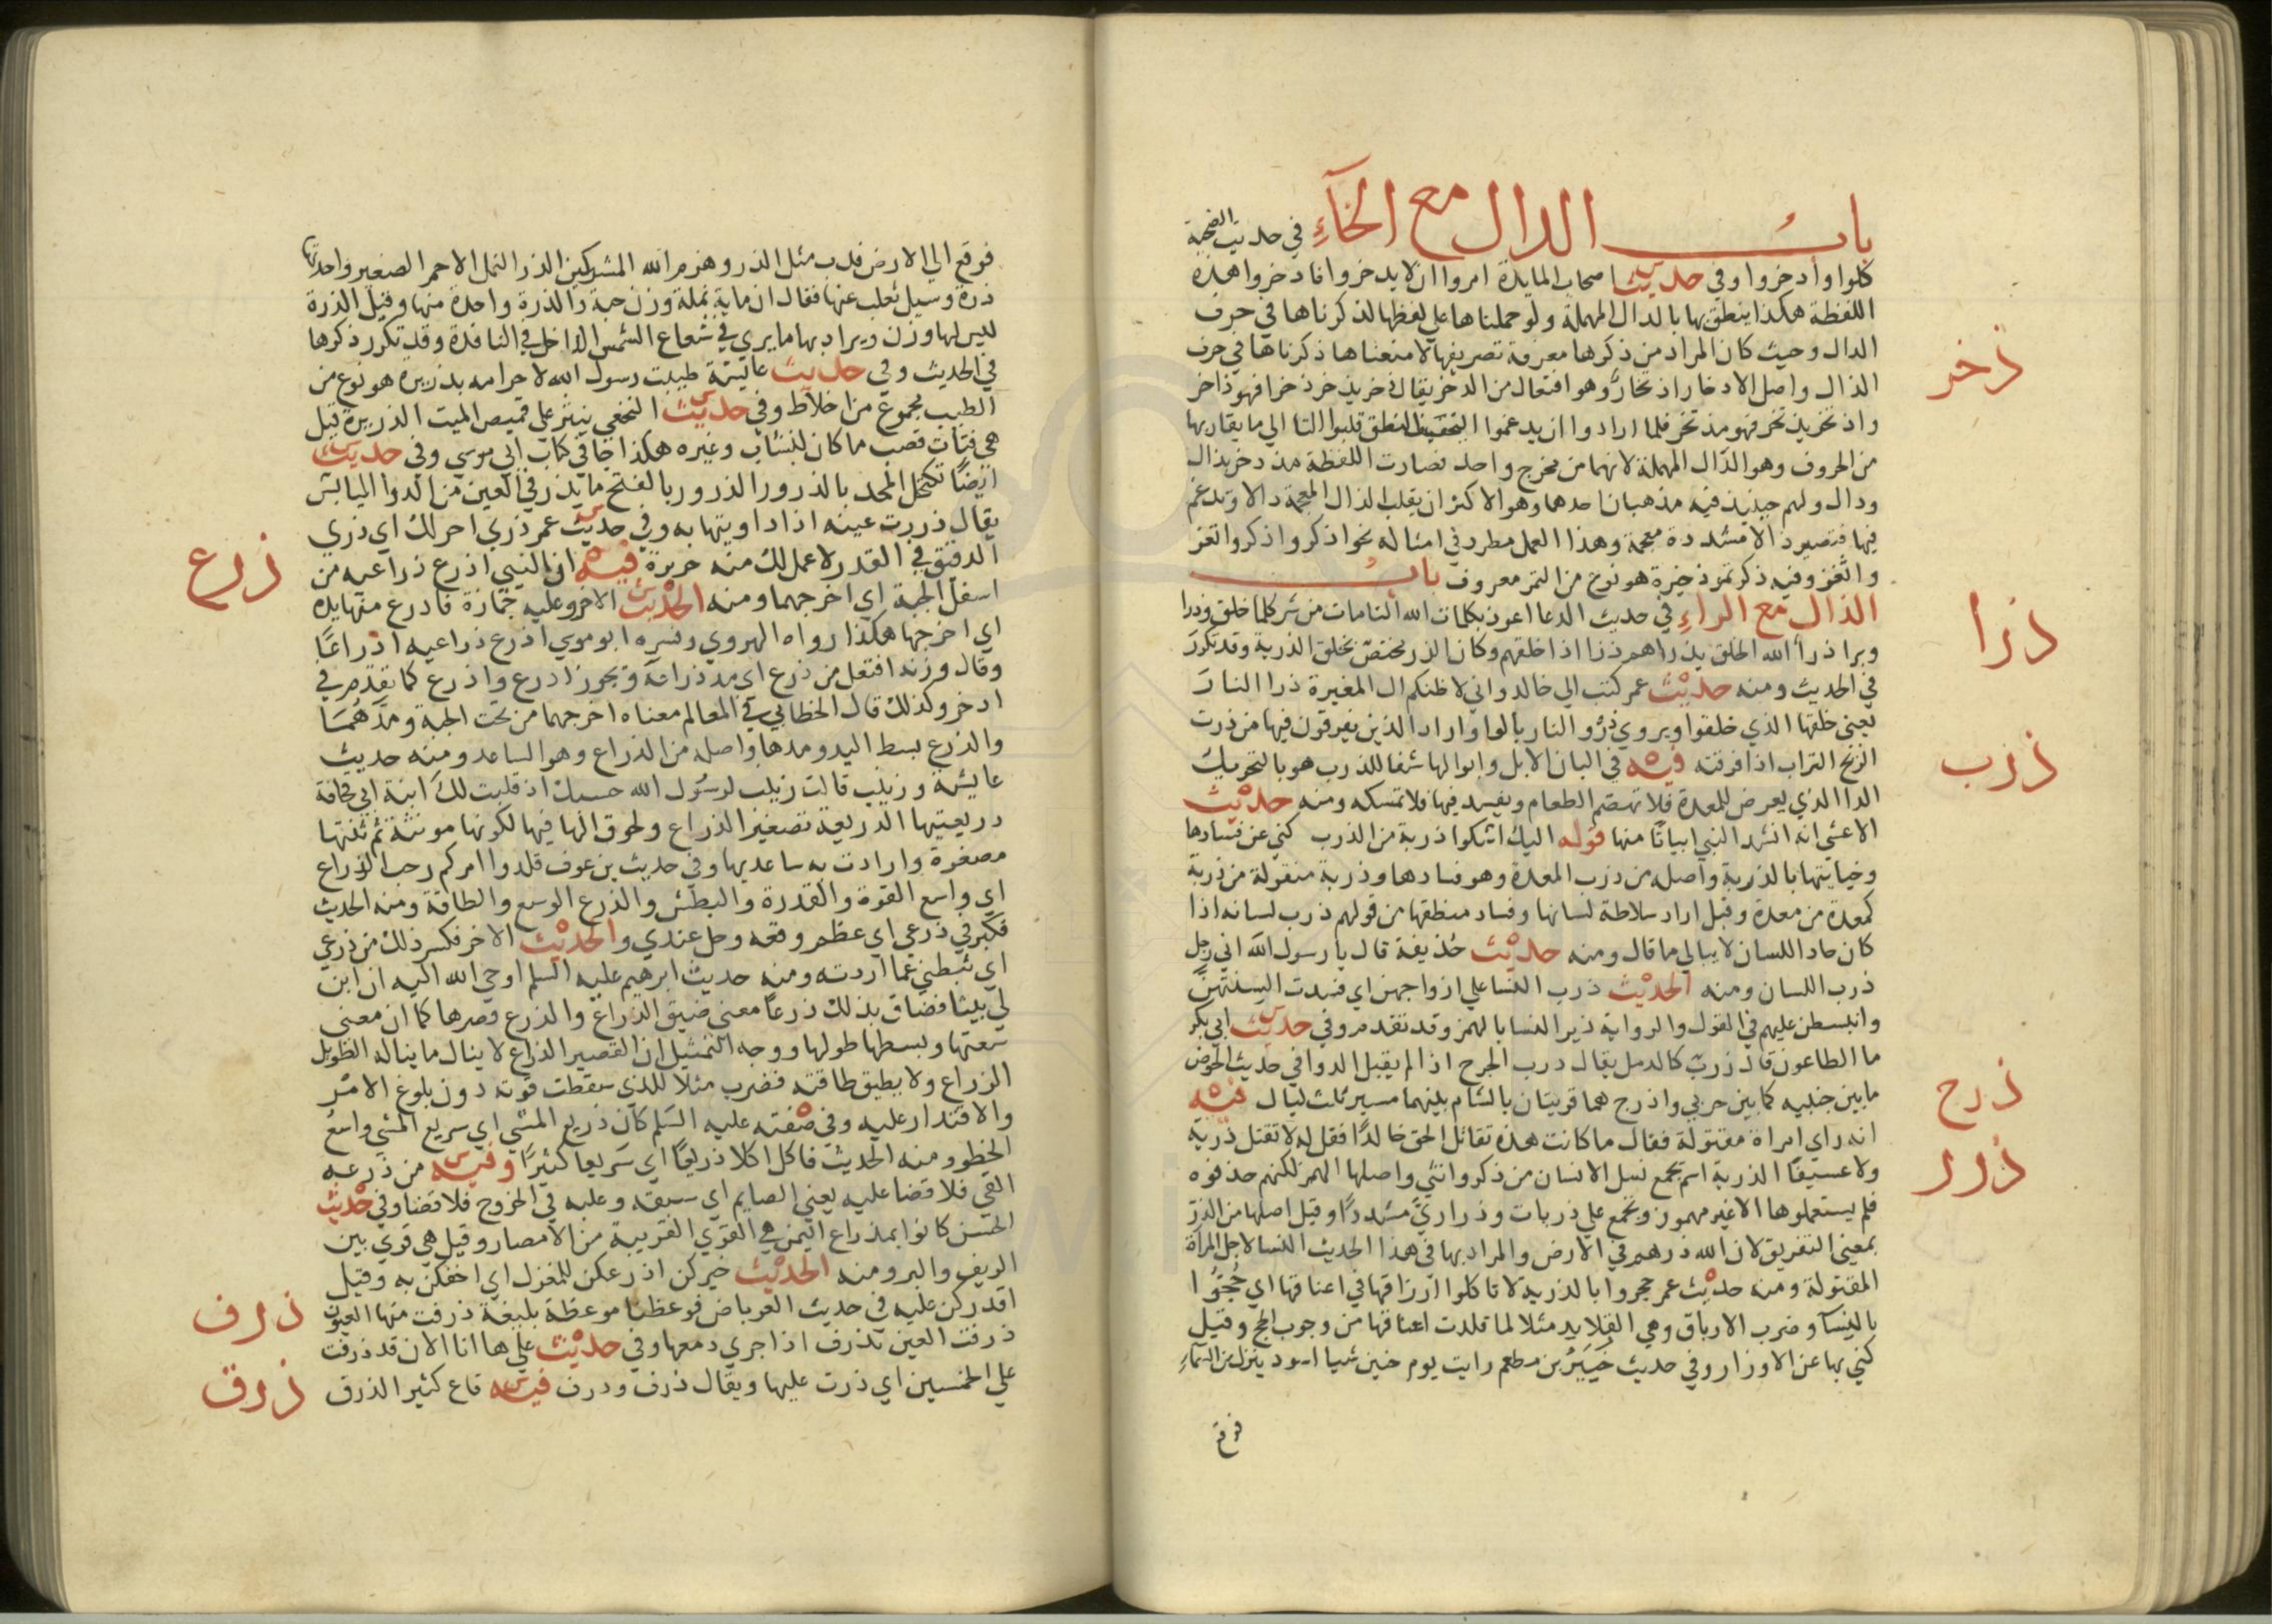 باب الدال مع الخآء في حديث الضحية
كلوا وادخروا وفي حديث اصحاب المايدة امروا ان لا يدخروا فادخروا هذه
اللفظة هكذا ينطق بها بالدال المهملة ولو حملناها علي لفظها لذكرناها في حرف
الدال وحيث كان المراد من ذكرها معرفة تصريفها لا معناها ذكرناها في حرف
الذال واصل الادخار اذتخار وهو افتعال من الذخر يقال ذخر يذخر ذخرا فهو ذاخر
واذتخر يذتخر فهو مذتخر فلما ارادوا ان يدغموا ليخف النطق قلبوا التا الي ما يقاربها
من الحروف وهو الدال المهملة لانهما من مخرج واحد فصارت اللفظة مذدخر بذال
ودال ولهم حينيذ فيه مذهبان احدهما وهو الاكثر ان يقلب الذال المعجمة دالا ويدغم
فيها فتصير ذالا مشددة معجمة وهذا العمل مطرد في امثاله نحو اذكر واذكر واتغر
واثغر وفيه ذكر تمر ذخيرة هو نوع من التمر معروف باب
ذخر
الذال مع الراء في حديث الدعا اعوذ بكلمات الله التامات من شر كلما خلق وذرا
وبرا ذرأ الله الخلق يذراهم ذرا اذا خلقهم وكان الذر مختص بخلق الذرية وقد تكرر
في الحديث ومنه حديث عمر كتب الي خالد واني لاظنكم ال المغيرة ذرا النار
يعني خلقها الذي خلقوا ويروي ذرو النار بالواو اراد الذين يفرقون فيها من ذرت
ذرا
الريح التراب اذا فرقته فيه في البان الابل وابوالها شفا للذرب هو بالتحريك
الدا الذي يعرض للمعدة فلا تهضم الطعام ويفسد فيها فلا تمسكه ومنه حديث
الاعشي انه انشد النبي ابياتا منها قوله اليك اشكوا ذربة من الذرب كني عن فسادها
وخيانتها بالذربة واصله من ذرب المعدة وهو فسادها وذربة منقولة من ذربة
كمعدة من معدة وقيل اراد سلاطة لسانها وفساد منطقها من قولهم ذرب لسانه اذا
كان حاد اللسان لا يبالي ما قال ومنه حديث حذيفة قال يا رسول الله اني رجل
ذرب اللسان ومنه الحديث ذرب النسا علي ازواجهن اي فسدت السنتهن
وانبسطن عليهم في القول والرواية ذير النسا بالهمز وقد تقدم وفي حديث ابي بكر
ما الطاعون قال ذرب كالدمل يقال درب الجرح اذا لم يقبل الدوا في حديث الحوض
ذرب
ما بين جنبيه كما بين جربي واذرج هما قريتان بالشام بينهما مسير ثلث ليال فيه
ذرج
انه راي امراة مقتولة فقال ما كانت هذه تقاتل الحق خالدا فقل له لا تقتل ذرية
ولا عسيفا الذرية اسم يجمع نسل الانسان من ذكر وانثي واصلها الهمز لكنهم حذفوه
فلم يستعملوها الا غير مهموز وتجمع علي ذريات وذراري مشددا وقيل اصلها من الذر
بمعني التفريق لان الله ذرهم في الارض والمراد بها في هذا الحديث النسا لاجل المراة
المقتولة ومنه حديث عمر حجوا بالذرية لا تاكلوا ارزاقها في اعناقها اي حجوا
بالنسآ وضرب الارباق وهي القلايد مثلا لما قلدت اعناقها من وجوب الحج وقيل
كني بها عن الاوزار وفي حديث جبير بن مطعم رايت يوم حنين شيا اسود ينزل من السمآء
ذرر
فوقع
فوقع الي الارض فدب مثل الذر وهزم الله المشركين الذر النمل الاحمر الصغير واحدتها
ذرة وسيل ثعلب عنها فقال ان ماية نملة وزن حبة والذرة واحدة منها وقيل الذرة
ليس لها وزن ويراد بها ما يري في شعاع الشمس الداخل في النافدة وقد تكرر ذكرها
في الحديث وفي حديث عايشة طيبت رسول الله لاحرامه بذريرة هو نوع من
الطيب مجموع من اخلاط وفي حديث النخعي ينثر علي قميص الميت الذريرة قيل
هي فتات قصب ما كان لنشاب وغيره هكذا جا في كتاب ابي موسي وفي حديث
ايضا تكتحل المحد بالذرور الذرور بالفتح ما يذر في العين من الدوا اليابس
يقال ذررت عينه اذا داويتها به وفي حديث عمر ذري احر لك اي ذري
الدقيق في القدر لاعمل لك منه حريرة فيه ان النبي اذرع ذراعيه من
اسفل الجبة اي اخرجهما ومنه الحديث الاخر وعليه جمازة فاذرع منها يده
اي اخرجها هكذا رواه الهروي وفسره ابو موسي اذرع ذراعيه اذراعا
وقال وزنه افتعل من ذرع اي مد ذراعه ويجوز ادرع واذرع كما تقدم في
ادخر وكذلك قال الخطابي في المعالم معناه اخرجهما من تحت الجبة ومدهما
والذرع بسط اليد ومدها واصله من الذراع وهو الساعد ومنه حديث
عايشة وزينب قالت زينب لرسول الله حسبك اذ قلبت لك ابنة ابي قحافة
ذريعتيها الذريعة تصغير الذراع ولحوق الها فيها لكونها مونثة ثم ثنتها
مصغرة وارادت به ساعديها وفي حديث بن عوف قلدوا امركم رحب الذراع
اي واسع القوة والقدرة والبطش والذرع الوسع والطاقة ومنه الحديث
فكبر في ذرعي اي عظم وقعه وجل عندي والحديث الاخر فكسر ذلك من ذرعي
اي ثبطني عما اردته ومنه حديث ابرهيم عليه السلم اوحي الله اليه ان ابن
لي بيتا فضاق بذلك ذرعا معني ضيق الذراع والذرع قصرها كما ان معني
سعتها وبسطها طولها ووجه التمثيل ان القصير الذراع لا ينال ما يناله الطويل
الذراع ولا يطيق طاقته فضرب مثلا للذي سقطت قوته دون بلوغ الامر
والاقتدار عليه وفي صفته عليه السلم كان ذريع المشي اي سريع المشي واسع
الخطو ومنه الحديث فاكل اكلا ذريعا اي سريعا كثيرا وفيه من ذرعه
القي فلا قضا عليه يعني الصايم اي سبقه وغلبه في الخروج فلا قضا وفي حديث
الحسن كانوا بمذراع اليمن هي القري القريبة من الامصار وقيل هي قري بين
الريف والبر ومنه الحديث خيركن اذرعكن للمغزل اي اخفكن به وقيل
ذرع
اقدركن عليه في حديث العرباض فوعظنا موعظة بليغة ذرفت منها العيون
ذرفت العين تذرف اذا جري دمعها وفي حديث علي ها انا الان قد ذرفت
علي الخمسين اي ذرت عليها ويقال ذرف وذرف فيه قاع كثير الذرق
ذرف
ذرق